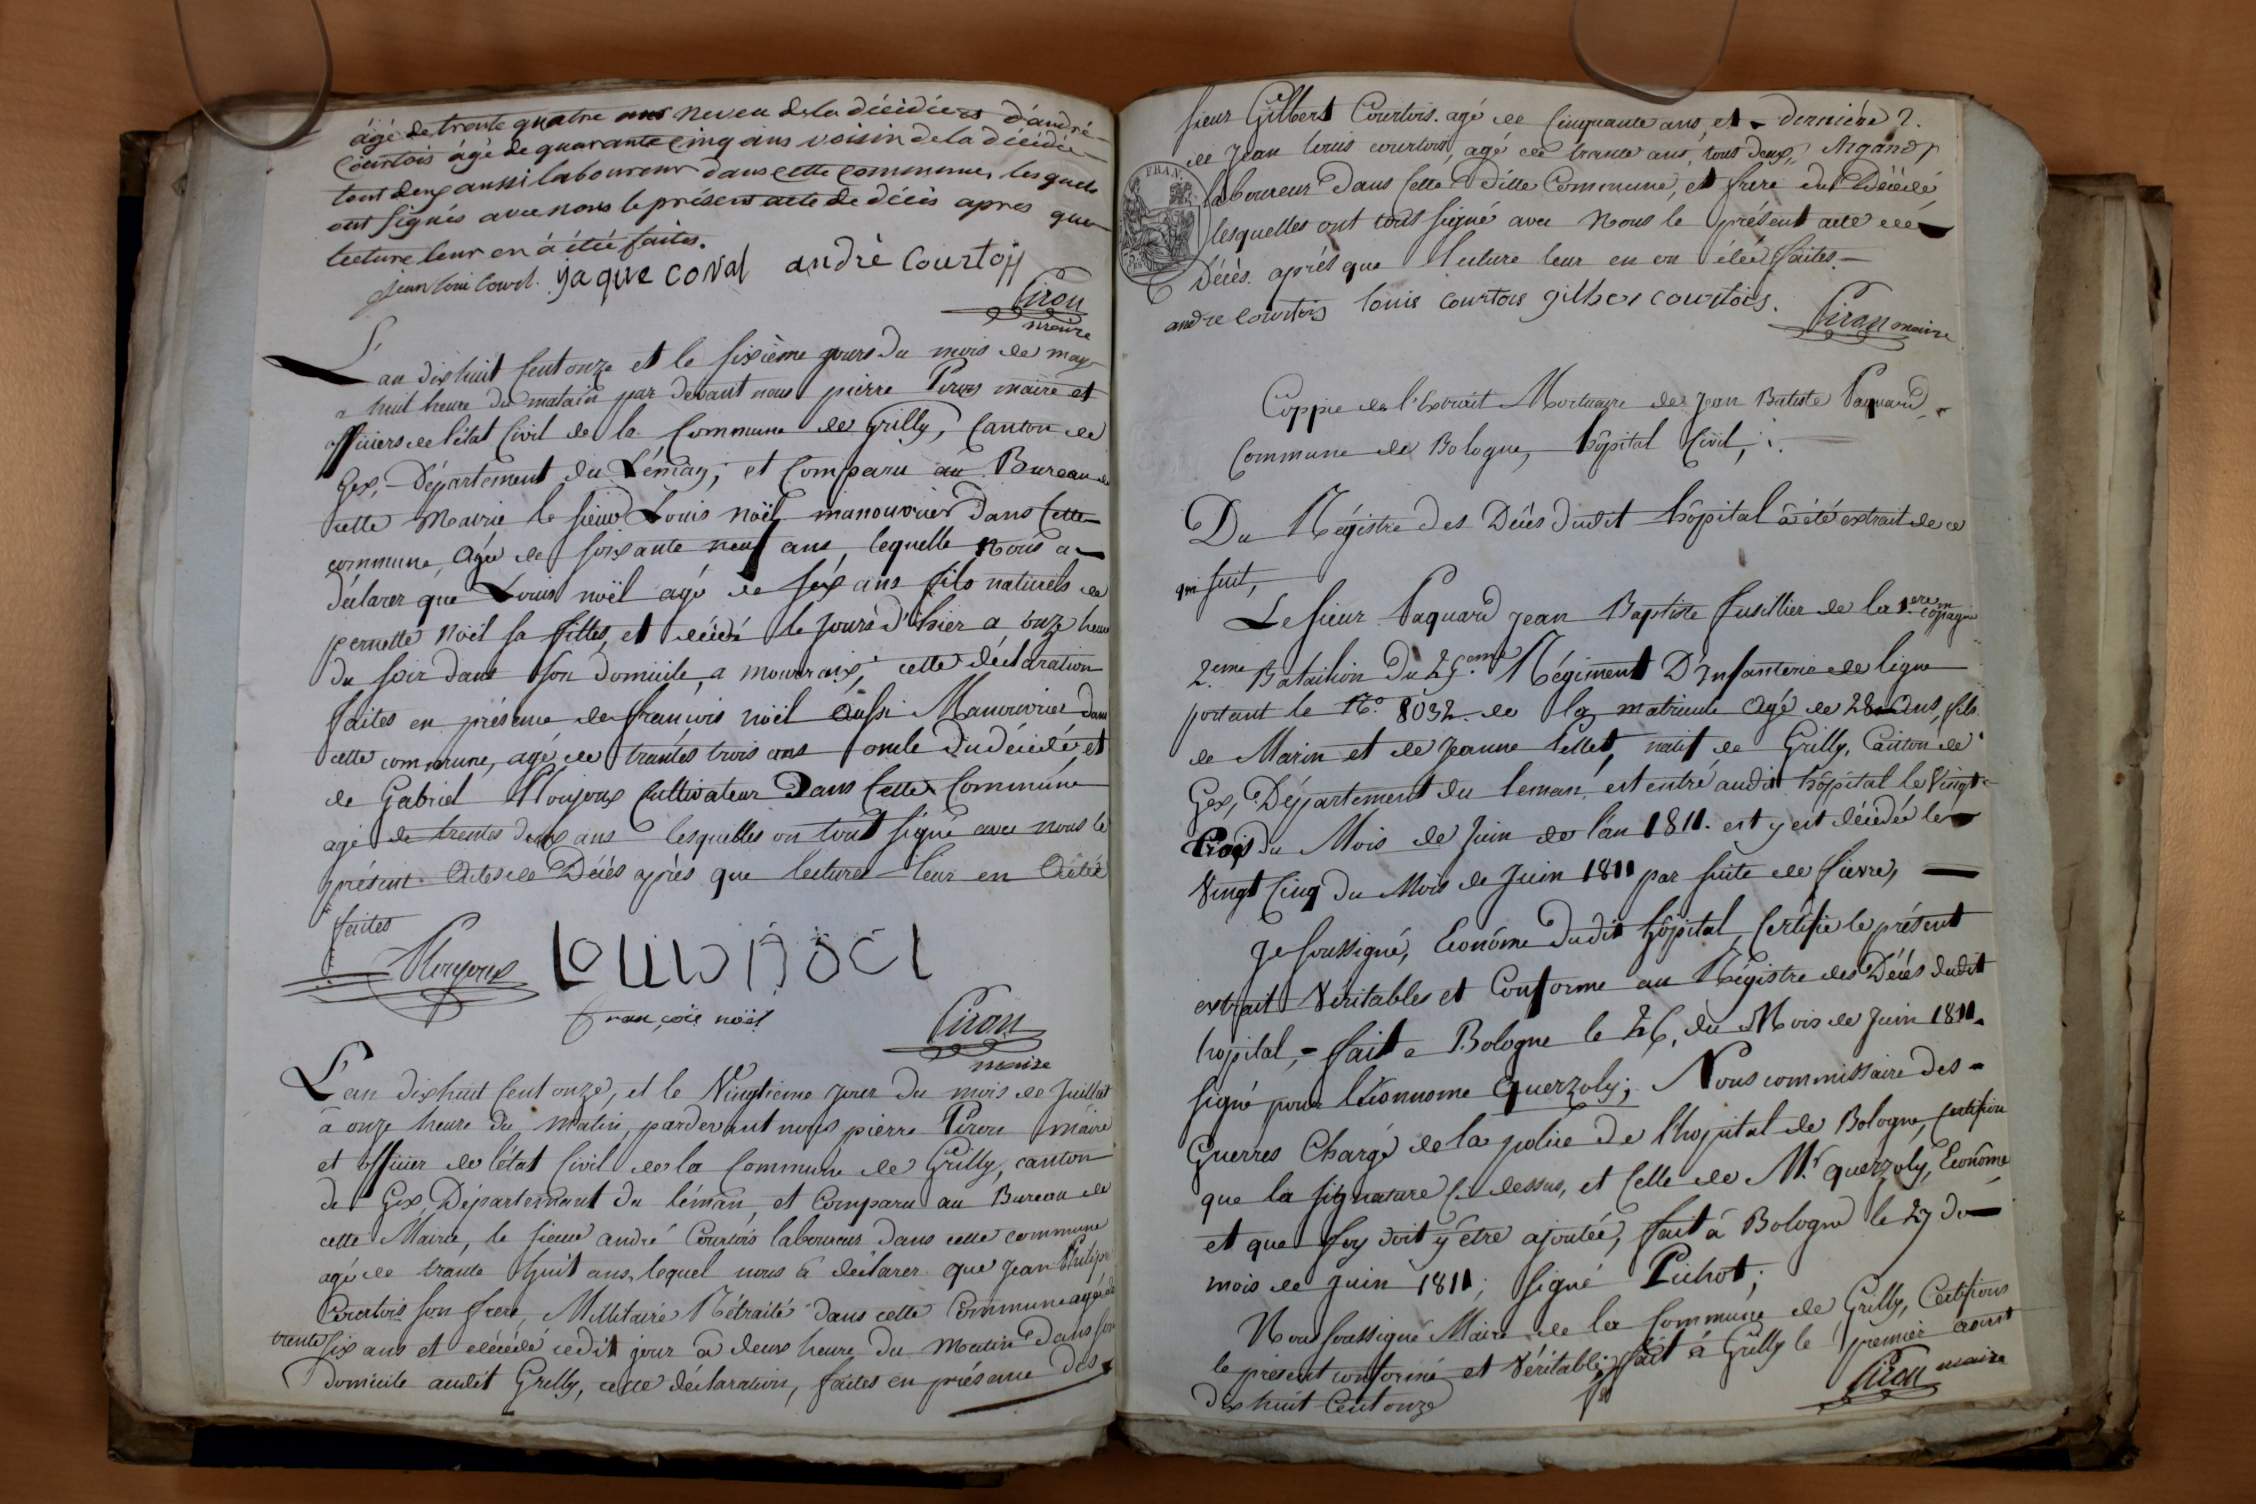 âgé de trente quatre ans neveu de la décédée et d'andré
Courtois âgé de quarante cinq ans voisin de la décédée
tout deux aussi laboureur dans cette commune, lesquels
ont signés avec nous le présent acte de décès apres que
lecture leur en à étée faites.
jean loui Court. jaque coval andrè courtois
Piron
maire
L'an dixhuit Cent onze et le sixième jours du mois de may
a huit heure du matain par devant nous pierre Piron maire et
officiers de l'état Civil de la Commune de Grilly, Canton de
Gex, Département du Léman, et Comparu au Bureau de
cette Mairie le sieur Louis noël manouvrier Dans Cette
commune, âgé de soixante neuf ans, lequelle Nous a
déclarer que Louis noël agé de six ans fils naturels de
pernette Noël sa filles, et décédé le jours d'hier a onze heure
du soir dans son domicile, a mourraix, cette déclaration
faites en présence de françois noël aussi Manouvrier dans
cette commune, agé de trantes trois ans oncle du décédé, et
de Gabriel Cultivateur Dans Cette Commune
agé de trentes deux ans lesquelles on tout signé avec nous le
présent Actes de Décès après que lecture leur en à été
faites
Louis noel
françois noël
Piron
maire
L'an dixhuit Cent onze, et le Vingtième jour du mois de Juillet
à onze heure du matin, pardevant nous pierre Piron maire
et officier de l'état Civil de la Commune de Grilly, canton
de Gex, Département du léman, et Comparu au Bureau de
cette Mairie, le sieur andré Courtois laboureur dans cette commune
agé de trante huit ans, lequel nous à déclarer que jean Philipe
Courtois son frere, Millitaire Rétraité dans cette Commune agé de
trante six ans et décédé cedit jour à deux heure du Matin dans son
domicile audit Grilly, cette déclaration, faites en présence des
sieur Gilbert Courtois. agé de Cinquante ans, et
de Jean louis courtois, agé de trante ans, tous deux,
laboureur dans Cette ditte Commune, et frere du Décédé
lesquelles ont tous signé avec Nous le présent acte de
Décès. après que lecture leur en on étée faites.
andre Courtois louis courtois gilber courtois.
Piron maire
Coppie de l'Extrait Mortuaire de Jean Batiste Paquard
Commune de Bologne, hôpital Civil,
Du Régistre des Décès dudit hôpital à été extrait de ce
qui suit,
Le sieur Paquard Jean Baptiste fusillier de la 1.ere Compagnie
2.eme Bataillon du 25.eme Régiment D'Infanterie de ligne
portant le N.o 8032. de la matricule agé de 28 Ans, fils
de Marin et de Jeanne Pellet, natif de Grilly, Canton de
Gex, Département du leman, est entré audit hôpital le Vingt
trois du Mois de Juin de l'an 1811. est y est décédée le
Vingt Cinq du Mois de Juin 1811 par suite de fievre,
Je soussigné, Econôme dudit hôpital, Certifie le présent
extrait Véritables et Conforme au Régistre des Décés dudit
hopital, fait a Bologne le 26, du Mois de Juin 1811.
signé pour l'Econnome Querzoly; Nous commissaire des
Guerres Chargé de la police de l'hopital de Bologne, Certifion
que la signature Ci dessus, et Celle de M.r Querzoly, Econôme
et que foy doit y être ajoutée, fait à Bologne le 27 du
mois de juin 1811; signé Pichot;
Nous soussigné Maire de la Commune de Grilly, Certifions
le présent conforme et Véritable; fait à Grilly le premier aoust
Dix huit Cent onze
Piron maire